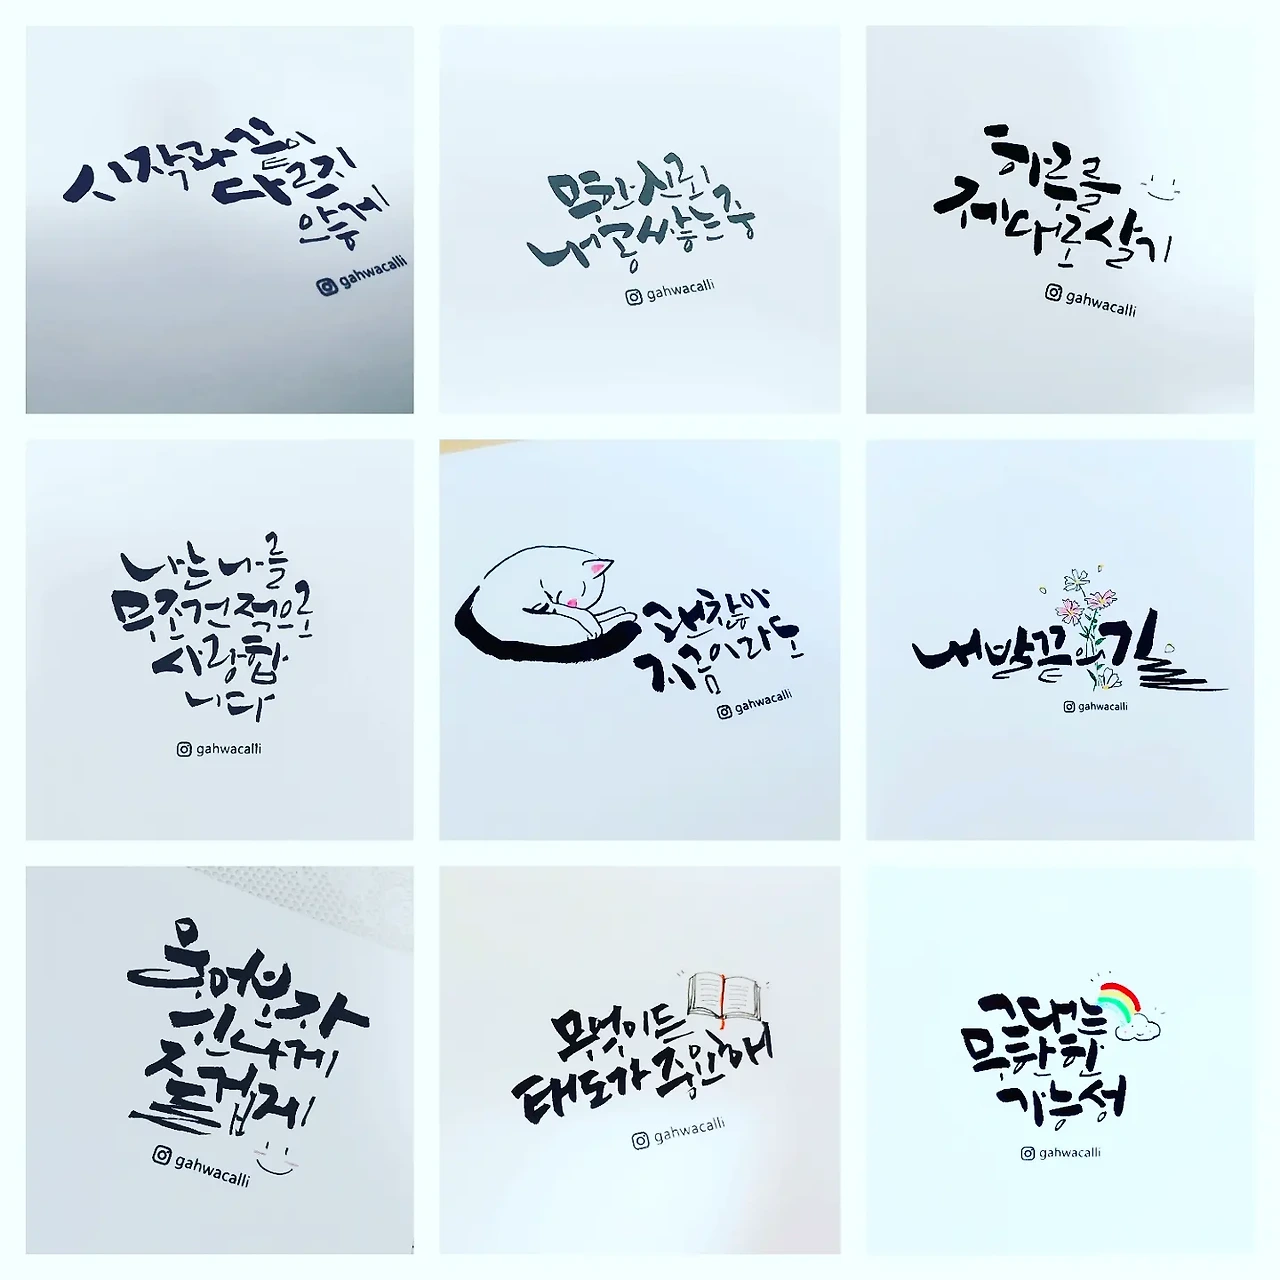 시작과 끝이
다르지
않게
gahwacalli
무한 신뢰
내공 쌓는 중
gahwacalli
하루를
제대로 살기
gahwacalli
나는 나를
무조건적으로
사랑합
니다
gahwacalli
괜찮아
지금이라도
gahwacalli
내 발끝의 길
gahwacalli
웃어보자
신나게
즐겁게
gahwacalli
무엇이든
태도가 중요해
gahwacalli
그대는
무한한
가능성
gahwacalli